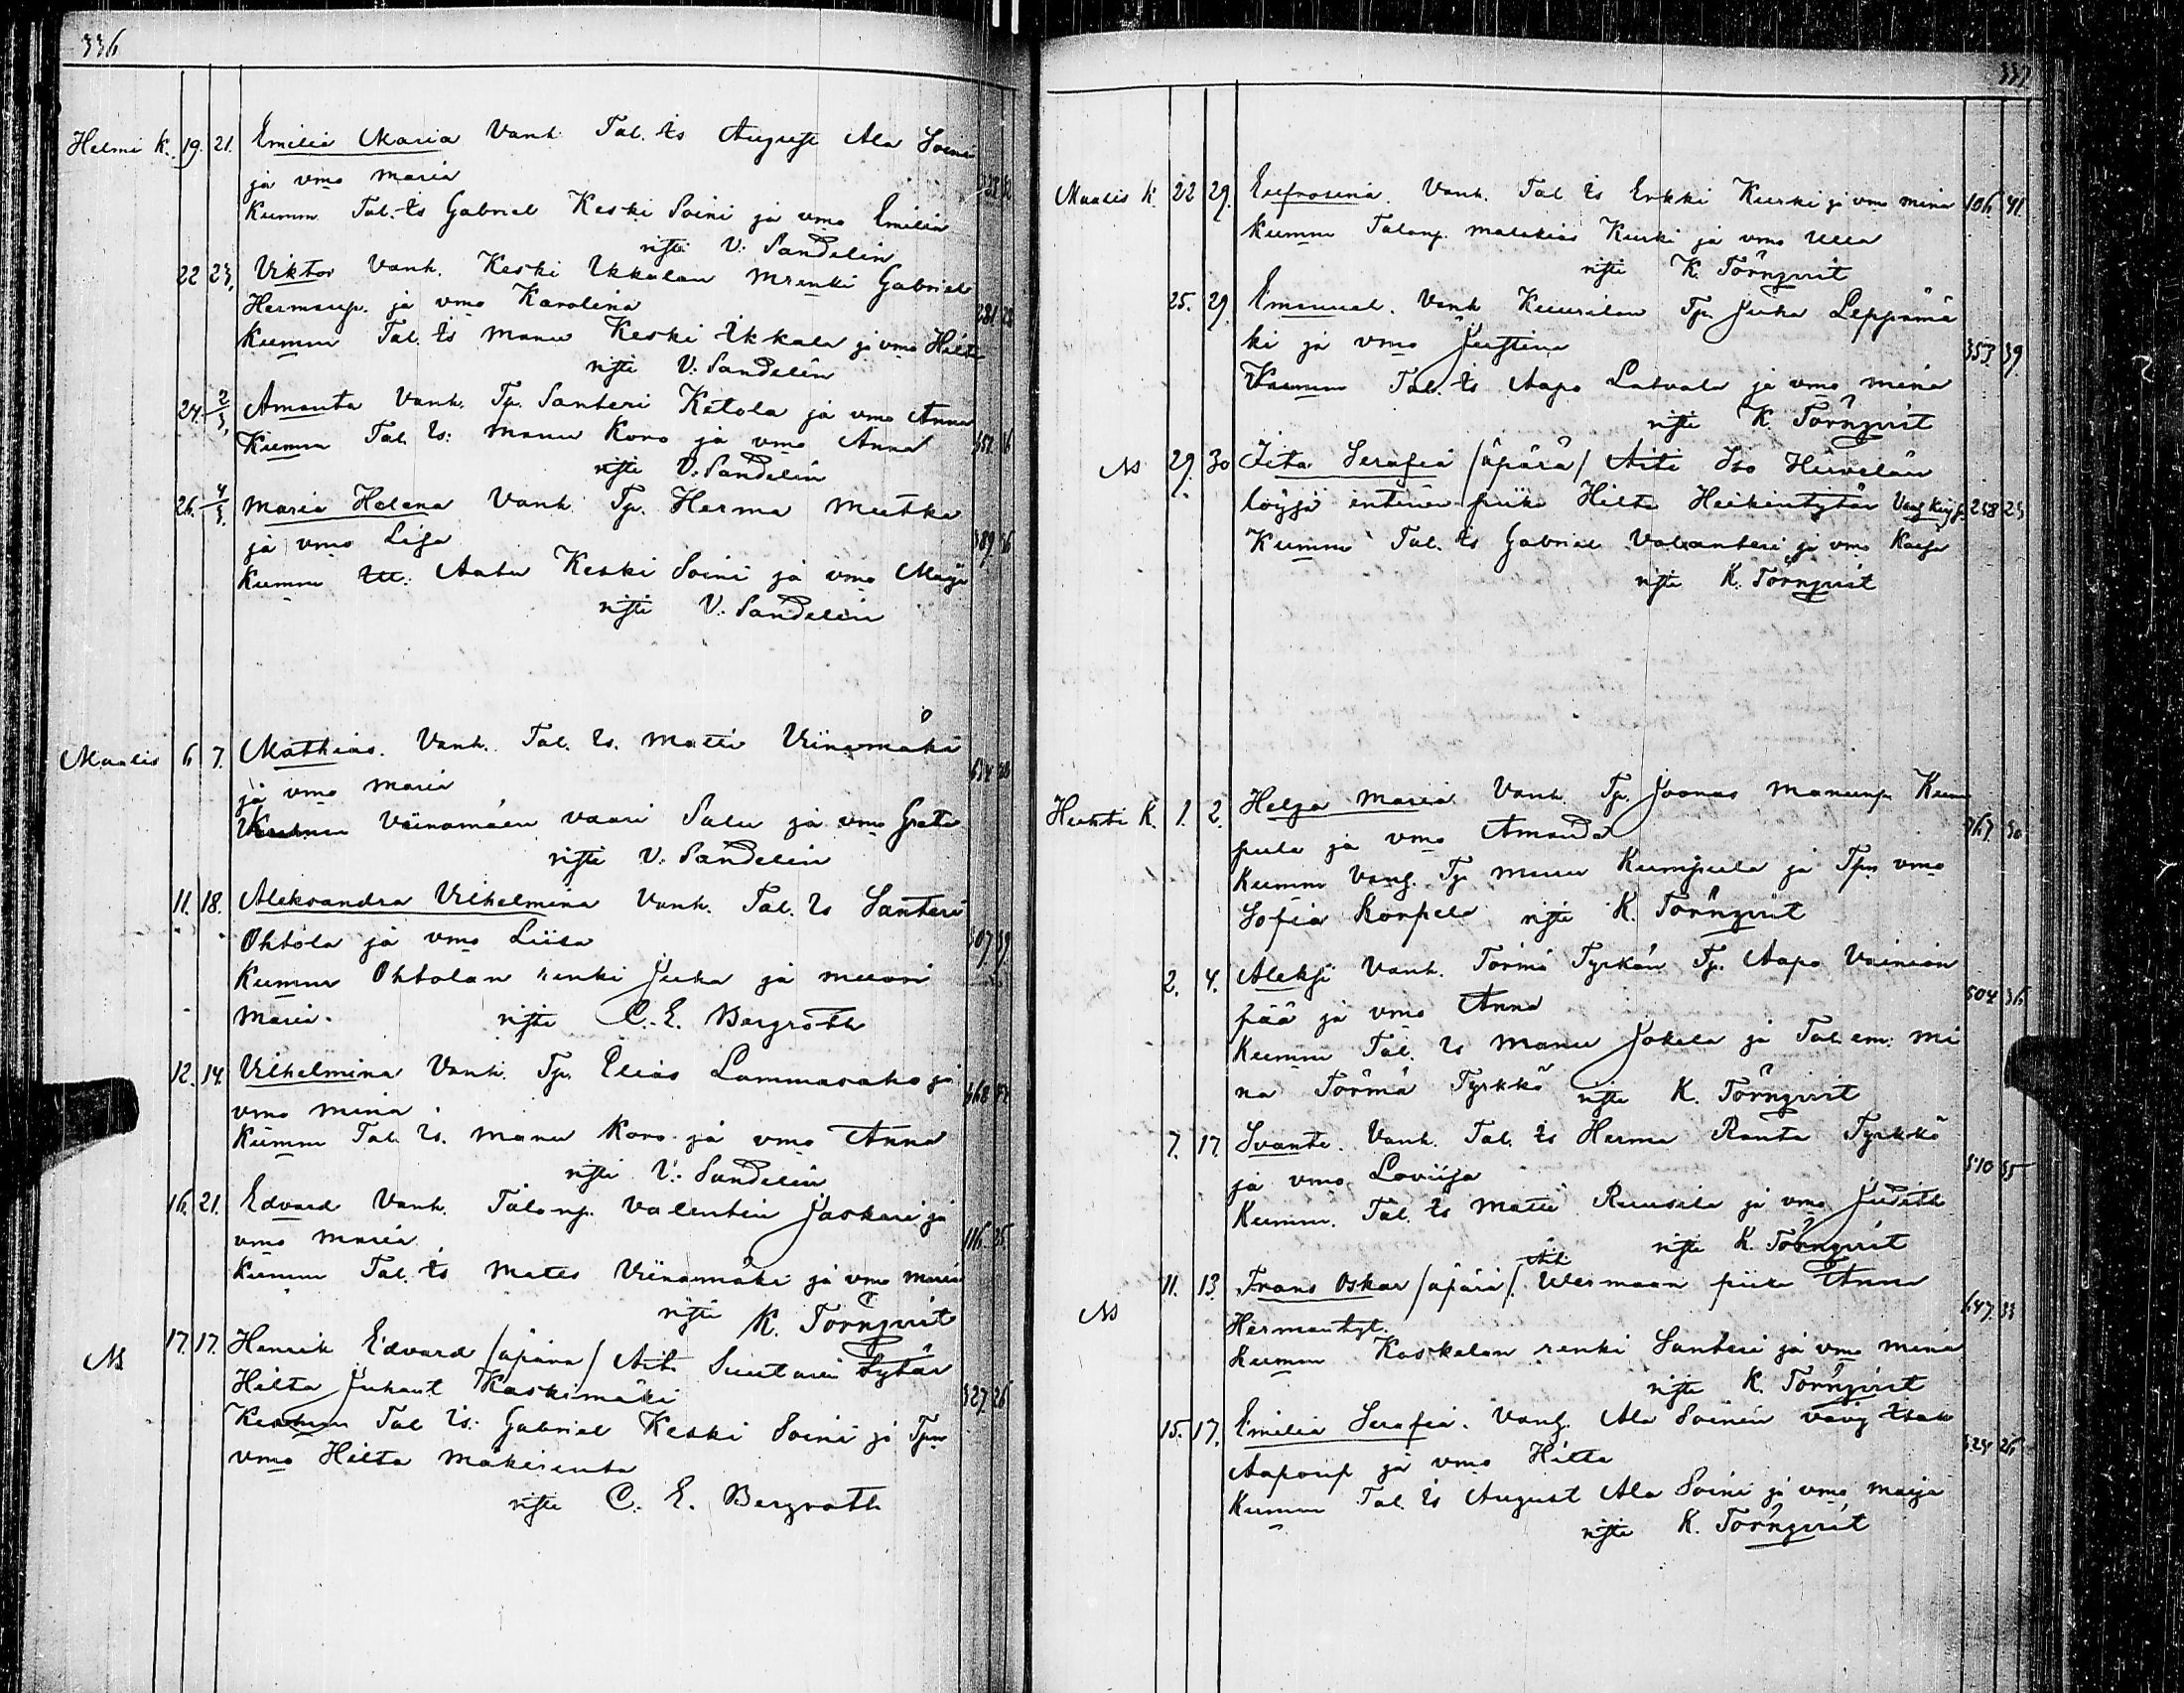 336
Helmi k. 19. 21. Emilia Maria Vanh. Tal. ts August Ala Soini
ja vmo Maria
Kumm. Tal. ts Gabriel Keski Soini ja vmo Emilia
risti V: Sandelin
22 23. Viktor Vanh. Keski Ikkalan Mrenki Gabriel
Hermanp. ja vmo Karolina 281 28
Kumm Tal. ts Manu Keski Ikkala ja vmo Hilta
risti V. Sandelin
24. 2/3. Amanta Vanh. Tp. Santeri Ketola ja vmo Anna
Kumm Tal. ts: Manu Koro ja vmo Anna
risti V: Sandelin
26. 4/3. Maria Helena Vanh Tp. Herma Mutka
ja vmo Lisa
Kumm Aatu Keski Soini ja vmo Maija
risti V: Sandelin
Maalis 6 7. Mathias. Vanh. Tal. ts. Matti Viinamäki
ja vmo Maria
Viinamäen vaari Salu ja vmo Greta
risti V: Sandelin
11. 18. Aleksandra Vilhelmina Vanh. Tal. ts Santeri
Ohtola ja vmo Liisa 507 39.
Kumm Ohtolan renki Juha ja muori
Maria. risti C. E. Bergroth
12. 14. Vilhelmina Vanh. Tp. Elias Lammasaho ja
vmo Mina
Kumm Tal. ts. Manu Koro ja vmo Anna
risti V: Sandelin
16. 21. Edvard Vanh. Talonp. Valentin Jaskari ja
vmo Maria 116. 25.
Kumm Tal. ts Mates Viinamäki ja vmo Maria
risti K. Törnqvist
17. 17. Henrik Edvard /äpärä/ Äiti Suutarin tytär
Hilta Juhant Kaskimäki 327. 26
Kumm Tal ts: Gabriel Keski Soini ja Tpm
vmo Hilta Mäkiranta
risti C. E. Bergroth
337
Maalis k. 22 29. Eufrosina. Vanh. Tal ts Erkki Kurki ja vmo Mina 106 41.
Kumm Talonp. Malakias Kurki ja vmo Ulla
risti K. Törnqvist
25. 29. Emanuel. Vanh Kuusilan Tp. Juha Leppämä
ki ja vmo Justina 353 39.
Kumm Tal. ts Aapo Latvala ja vmo Mina
risti K. Törnqvist
29. 30 Iita Serafia /äpärä/ Äiti Iso Hirvelän
löyjä entinen piika Hilta Heikintytär 258 23
Kumm Tal. ts Gabriel Valanteri ja vmo Kaisa
risti K. Törnqvist
Huhti K. 1. 2. Helga Maria Vanh Tp. Joonas Manunp Kum
pula ja vmo Amanda 767. 30
Kumm Vanh. Tp Manu Kumpula ja Tpm vmo
Sofia Korpela risti K. Törnqvist
2. 4. Aleksi Vanh. Törmä Tyrkön Tp. Aapo Vainion
pää ja vmo Anna 504 36
Kumm Tal. ts Manu Jokela ja Tal. em. Mi
na Törmä Tyrkkö risti K. Törnqvist
7. 17. Svante. Vanh. Tal. ts Herma Ranta Tyrkkö
ja vmo Loviisa 510 35
Kumm. Tal. ts Matti Ruusila ja vmo Judith
risti K. Törnqvist
11. 13. Frans Oskar /äpärä/. Äiti Ulesmaan piika Anna
Hermantyt. 647. 33
Kumm Koskelan renki Santeri ja vmo Mina
risti K. Törnqvist
15. 17. Emilia Serafia. Vanh. Ala Soinin vävy Isak
Aaponp ja vmo Hilta 324 26
Kumm Tal. ts August Ala Soini ja vmo Maija
risti K. Törnqvist